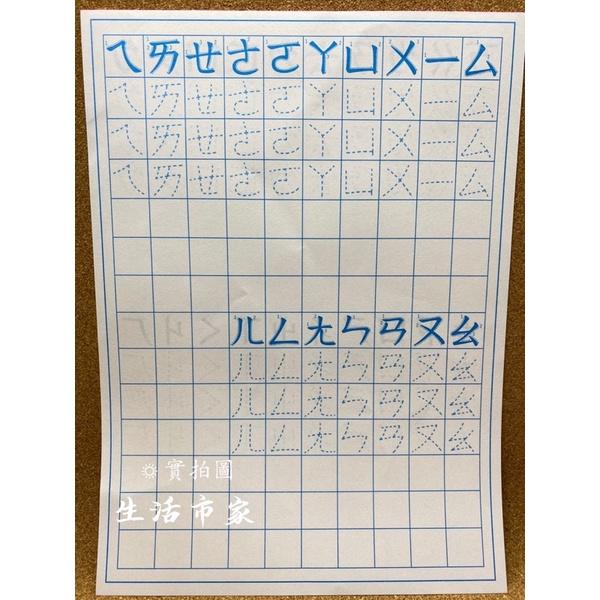 ㄟ ㄞ ㄝ ㄜ ㄛ ㄚ ㄩ ㄨ ㄧ ㄙ
ㄟ ㄞ ㄝ ㄜ ㄛ ㄚ ㄩ ㄨ ㄧ ㄙ
ㄟ ㄞ ㄝ ㄜ ㄛ ㄚ ㄩ ㄨ ㄧ ㄙ
ㄟ ㄞ ㄝ ㄜ ㄛ ㄚ ㄩ ㄨ ㄧ ㄙ
ㄦ ㄥ ㄤ ㄣ ㄢ ㄡ ㄠ
ㄦ ㄥ ㄤ ㄣ ㄢ ㄡ ㄠ
ㄦ ㄥ ㄤ ㄣ ㄢ ㄡ ㄠ
ㄦ ㄥ ㄤ ㄣ ㄢ ㄡ ㄠ
實拍圖
生活市家